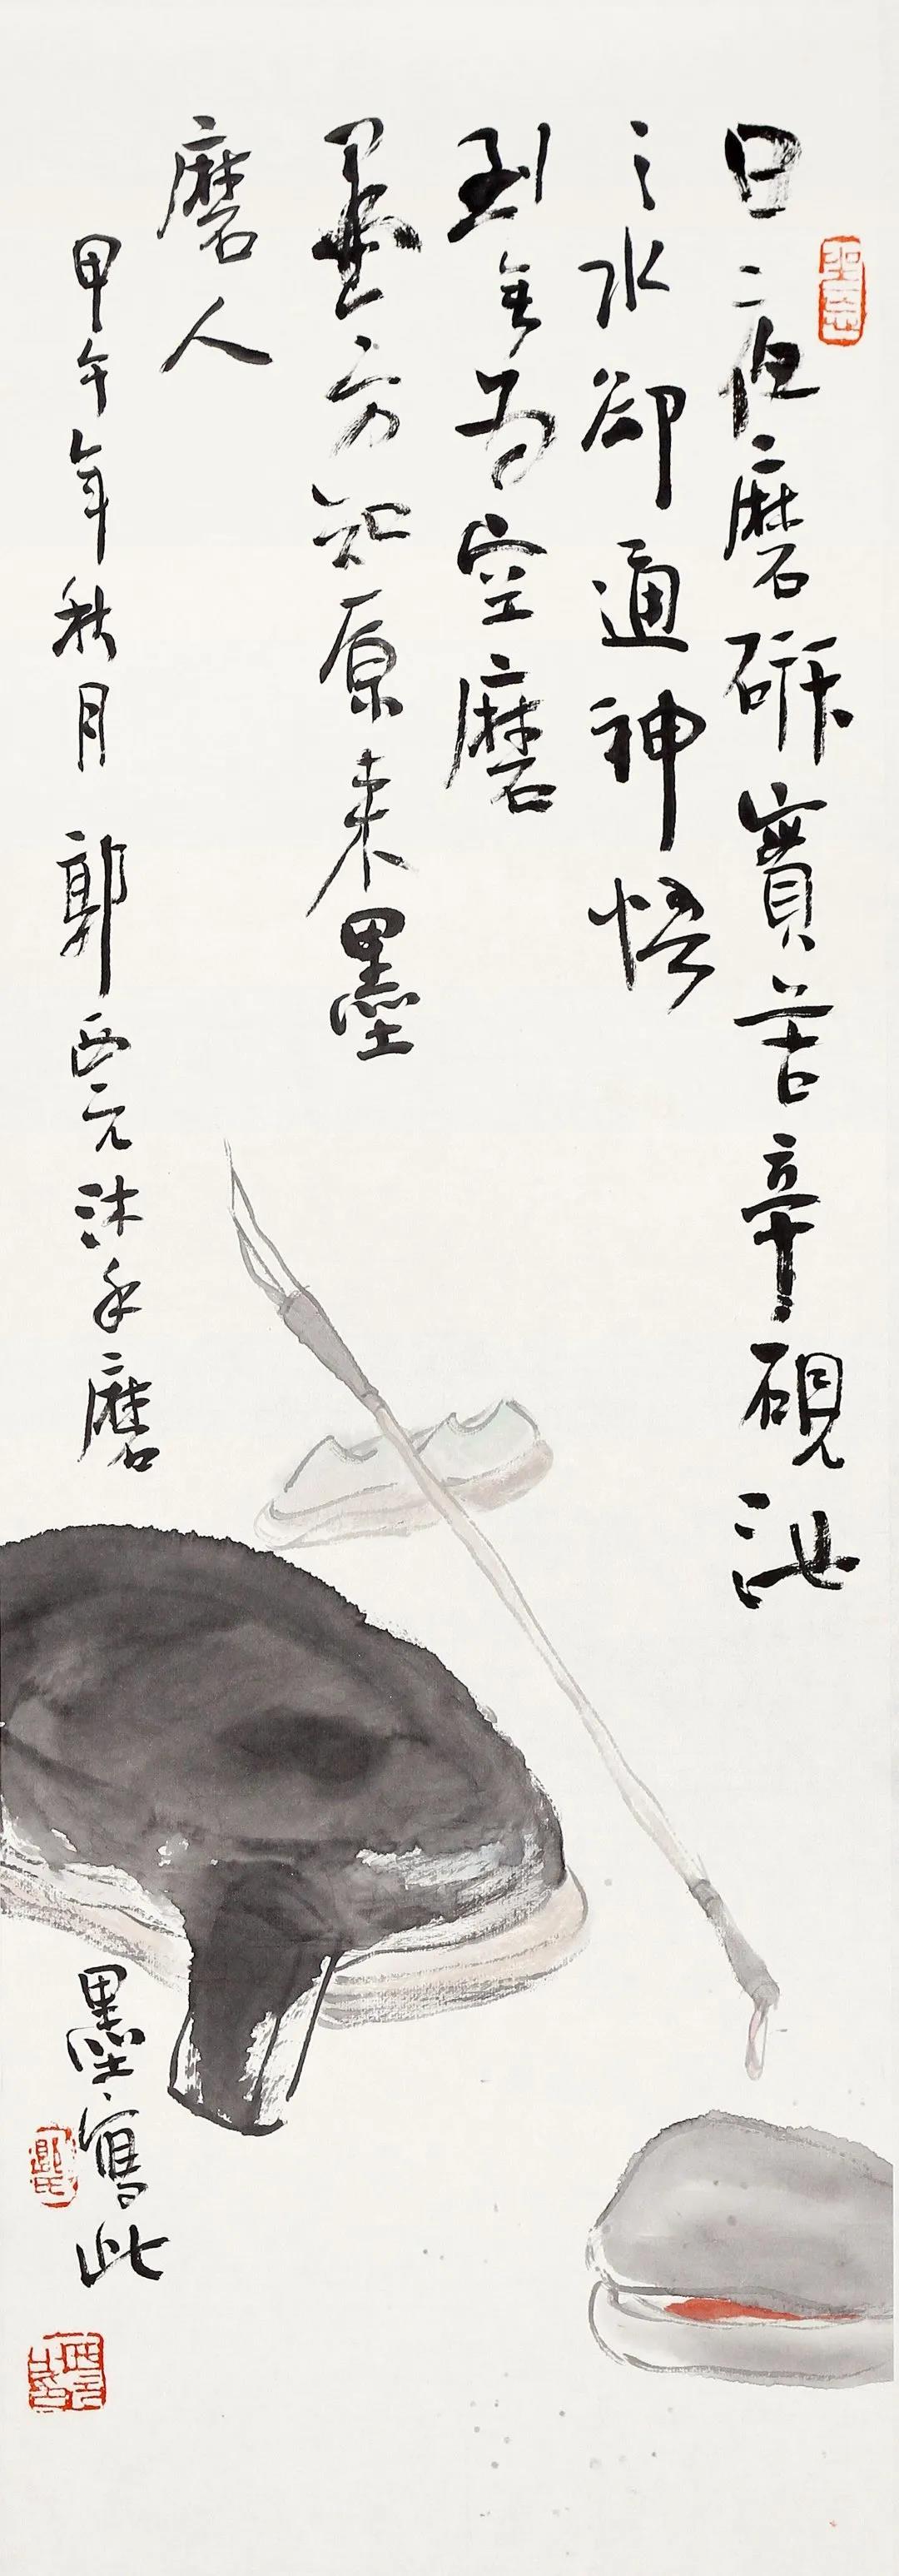 日夜磨研實苦辛硯池
之水卻通神悟
到無為空磨
墨方知原來墨
磨人
甲午年秋月 郭西元沐手磨墨寫此